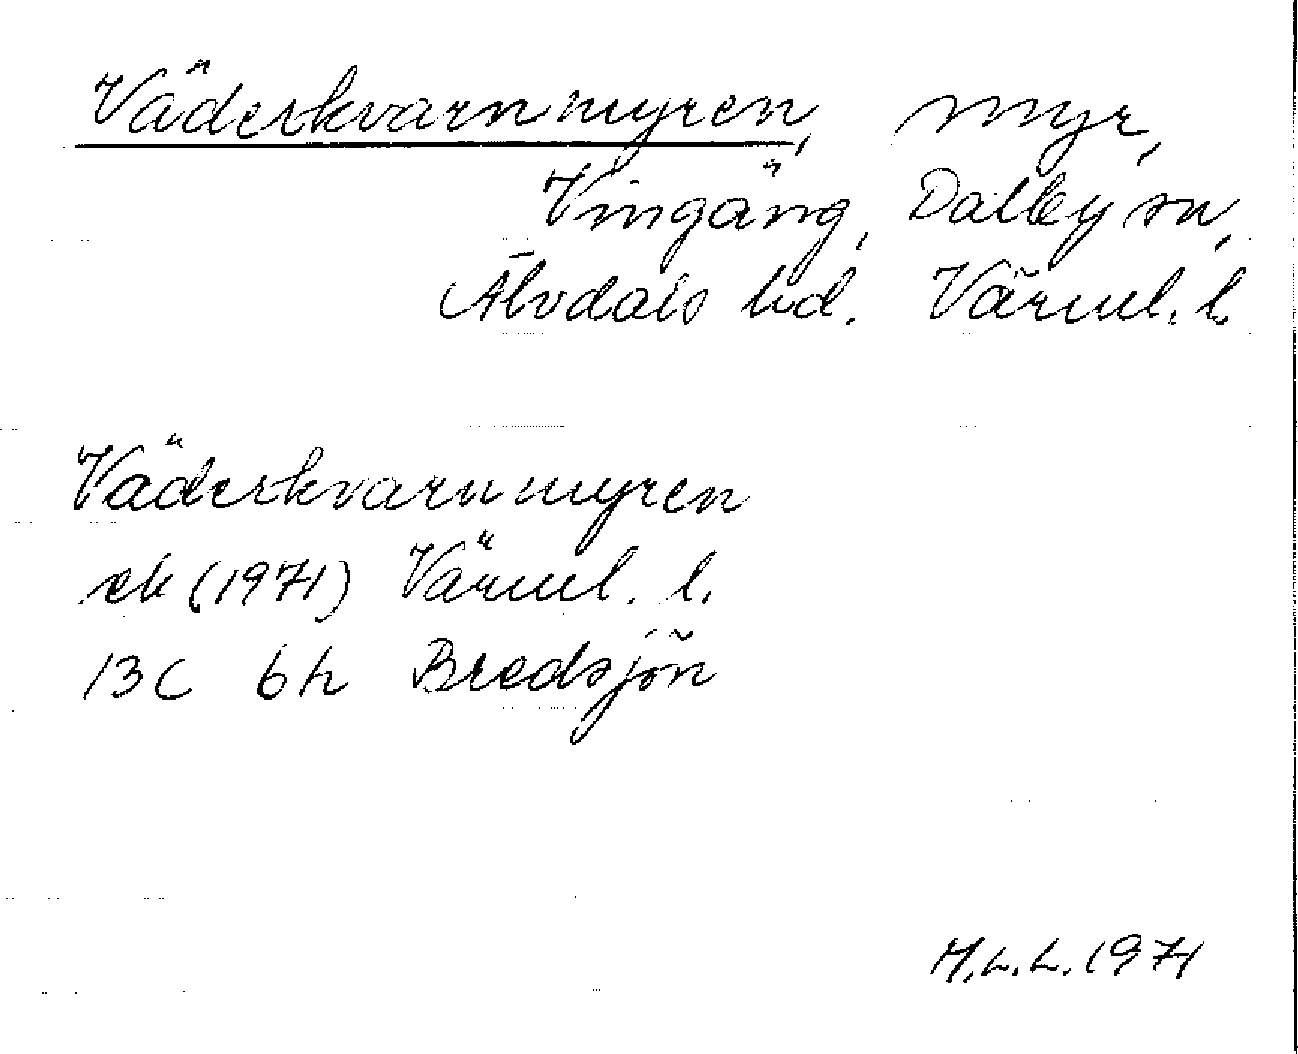 Väderkvarnmyren, myr,
Vingäng, Dalby sn,
Älvdals hd. Värml. l.
Väderkvarnmyren
ek (1971) Värml. l.
13C 6h Bredsjön
M.L.L. 1971